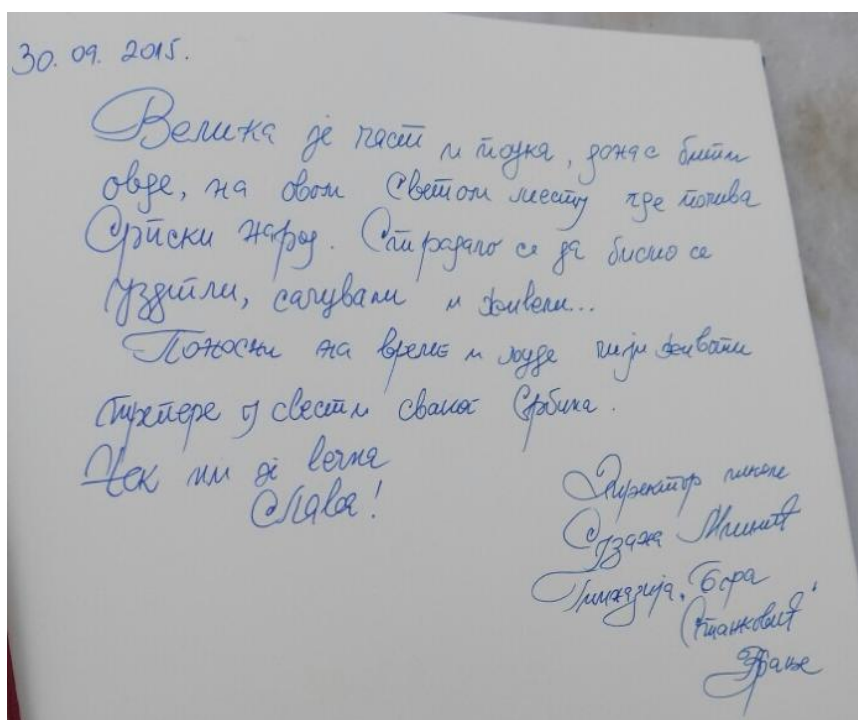 30. 09. 2015.
Велика је част и поука, данас бити
овде, на овом Светом месту где почива
Српски народ. Страдало се да бисмо се
уздигли, сачували и живели...
Поносни на време и људе чији животи
трепере у свести сваког Србина.
Нек им је вечна
Слава!
Директор школе
Сузана
Гимназија „Бора
Станковић"
Врање